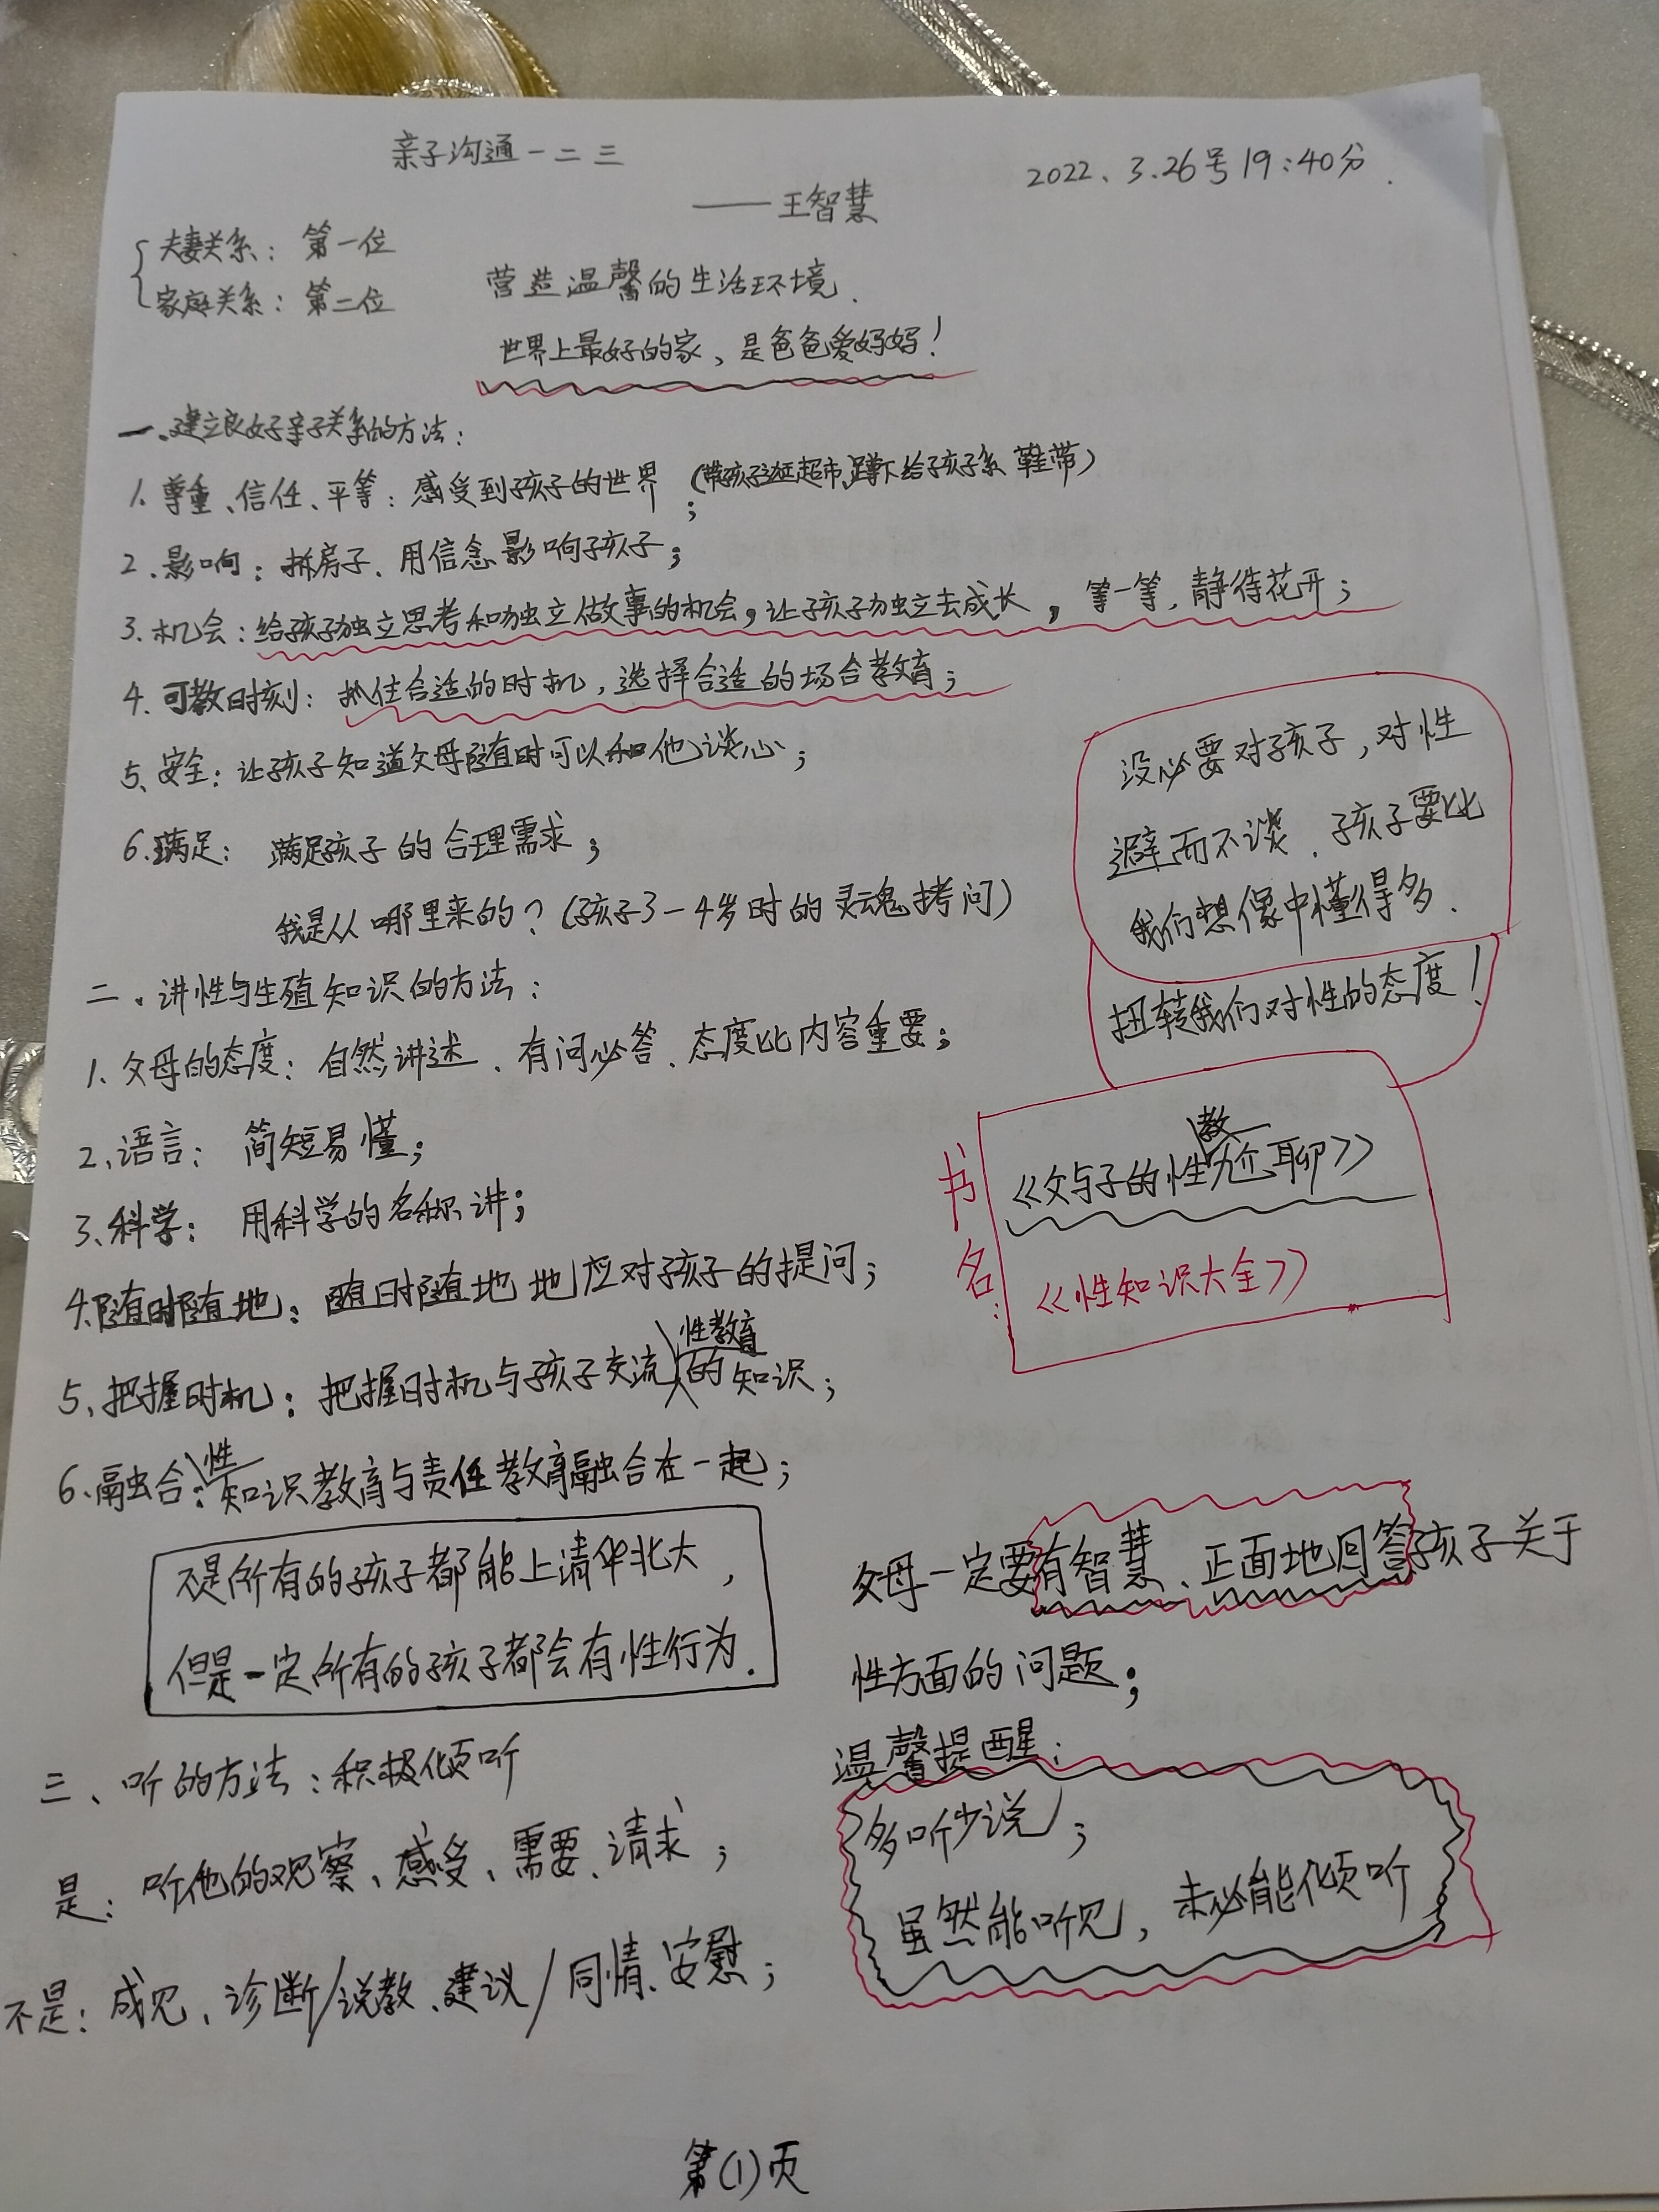 亲子沟通一二三
——王智慧
2022、3.26号19:40分.
夫妻关系：第一位
家庭关系：第二位
营造温馨的生活环境.
世界上最好的家，是爸爸爱妈妈！
一、建立良好亲子关系的方法：
1、尊重、信任、平等：感受到孩子的世界；(带孩子逛超市,蹲下给孩子系鞋带)
2、影响：拆房子、用信念影响孩子；
3、机会：给孩子独立思考和独立做事的机会，让孩子独立去成长，等一等，静待花开；
4、可教时刻：抓住合适的时机，选择合适的场合教育；
5、安全：让孩子知道父母随时可以和他谈心；
6.满足：满足孩子的合理需求；
我是从哪里来的？(孩子3-4岁时的灵魂拷问)
没必要对孩子，对性
避而不谈．孩子要比
我们想像中懂得多．
扭转我们对性的态度！
二、讲性与生殖知识的方法：
1、父母的态度：自然讲述、有问必答、态度比内容重要；
2、语言：简短易懂；
3、科学：用科学的名称讲；
4.随时随地：随时随地地应对孩子的提问；
5、把握时机：把握时机与孩子交流性教育的知识；
6.融合：性知识教育与责任教育融合在一起；
书名：
《父与子的性教尬聊》
《性知识大全》
不是所有的孩子都能上清华北大，
但是一定所有的孩子都会有性行为．
父母一定要有智慧、正面地回答孩子关于
性方面的问题；
三、听的方法：积极倾听
是：听他的观察、感受、需要、请求；
不是：成见、诊断/说教、建议/同情、安慰；
温馨提醒：
多听少说；
虽然能听见，未必能倾听
第(1)页